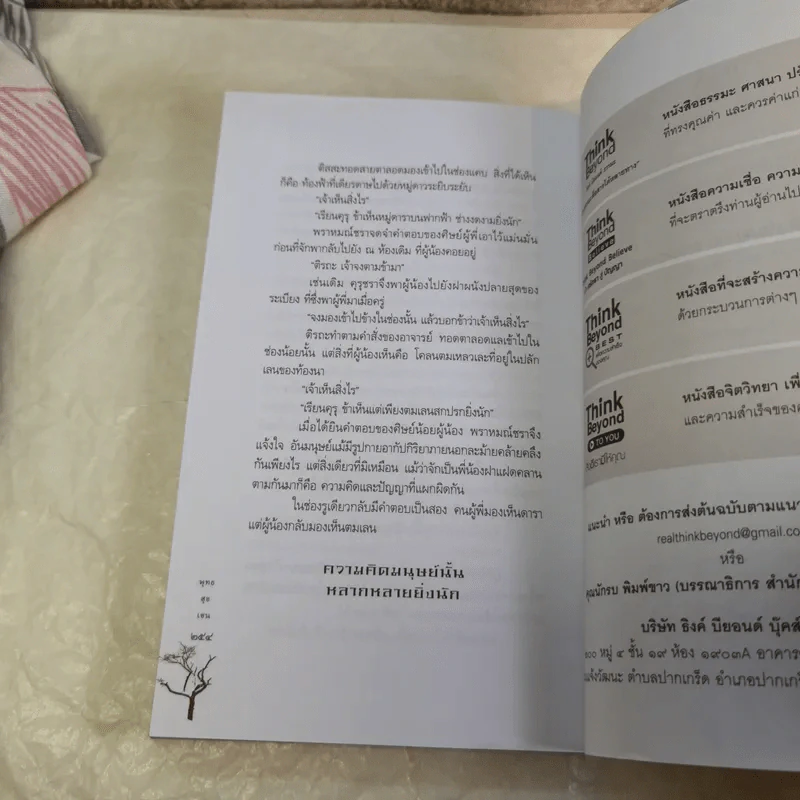 ติสสะทอดสายตาลอดมองเข้าไปในช่องแคบ สิ่งที่ได้เห็น
ก็คือ ท้องฟ้าที่เดียรดาษไปด้วยหมู่ดาวระยิบระยับ
“เจ้าเห็นสิ่งไร”
“เรียนคุรุ ข้าเห็นหมู่ดาราบนฟากฟ้า ช่างงดงามยิ่งนัก”
พราหมณ์ชราจดจำคำตอบของศิษย์ผู้พี่เอาไว้แม่นมั่น
ก่อนที่จักพากลับไปยัง ณ ห้องเดิม ที่ผู้น้องคอยอยู่
“ติรถะ เจ้าจงตามข้ามา”
เช่นเดิม คุรุชราจึงพาผู้น้องไปยังฝาผนังปลายสุดของ
ระเบียง ที่ซึ่งพาผู้พี่มาเมื่อครู่
“จงมองเข้าไปข้างในช่องนั้น แล้วบอกข้าว่าเจ้าเห็นสิ่งไร”
ติรถะทำตามคำสั่งของอาจารย์ ทอดตาลอดแลเข้าไปใน
ช่องน้อยนั้น แต่สิ่งที่ผู้น้องเห็นคือ โคลนตมเหลวเละที่อยู่ในปลัก
เลนของท้องนา
“เจ้าเห็นสิ่งไร”
“เรียนคุรุ ข้าเห็นแต่เพียงตมเลนสกปรกยิ่งนัก”
เมื่อได้ยินคำตอบของศิษย์น้อยผู้น้อง พราหมณ์ชราจึง
แจ้งใจ อันมนุษย์แม้มีรูปกายอากัปกิริยาภายนอกละม้ายคล้ายคลึง
กันเพียงไร แต่สิ่งเดียวที่มิเหมือน แม้ว่าจักเป็นพี่น้องฝาแฝดคลาน
ตามกันมาก็คือ ความคิดและปัญญาที่แผกผิดกัน
ในช่องรูเดียวกลับมีคำตอบเป็นสอง คนผู้พี่มองเห็นดารา
แต่ผู้น้องกลับมองเห็นตมเลน
ความคิดมนุษย์นั้น
หลากหลายยิ่งนัก
พุทธ
สุข
เซน
๒๕๔
Think
Beyond
หนังสือธรรมะ ศาสนา
ที่ทรงคุณค่า และควรค่าแก่
Think
Beyond
Believe
Beyond Believe
ปัญญา
หนังสือความเชื่อ ความ
ที่จะตราตรึงท่านผู้อ่านไป
Think
Beyond
BEST
หนังสือที่จะสร้างความ
ด้วยกระบวนการต่างๆ
Think
Beyond
TO YOU
หนังสือจิตวิทยา
และความสำเร็จของ
แนะนำ หรือ ต้องการส่งต้นฉบับตามแนว
realthinkbeyond@gmail.co
หรือ
คุณนักรบ พิมพ์ขาว (บรรณาธิการ
บริษัท ธิงค์ บียอนด์ บุ๊คส์
หมู่ ๔ ชั้น ๑๙ ห้อง ๑๙๐๓A อาคาร
แจ้งวัฒนะ ตำบลปากเกร็ด อำเภอปากเกร็